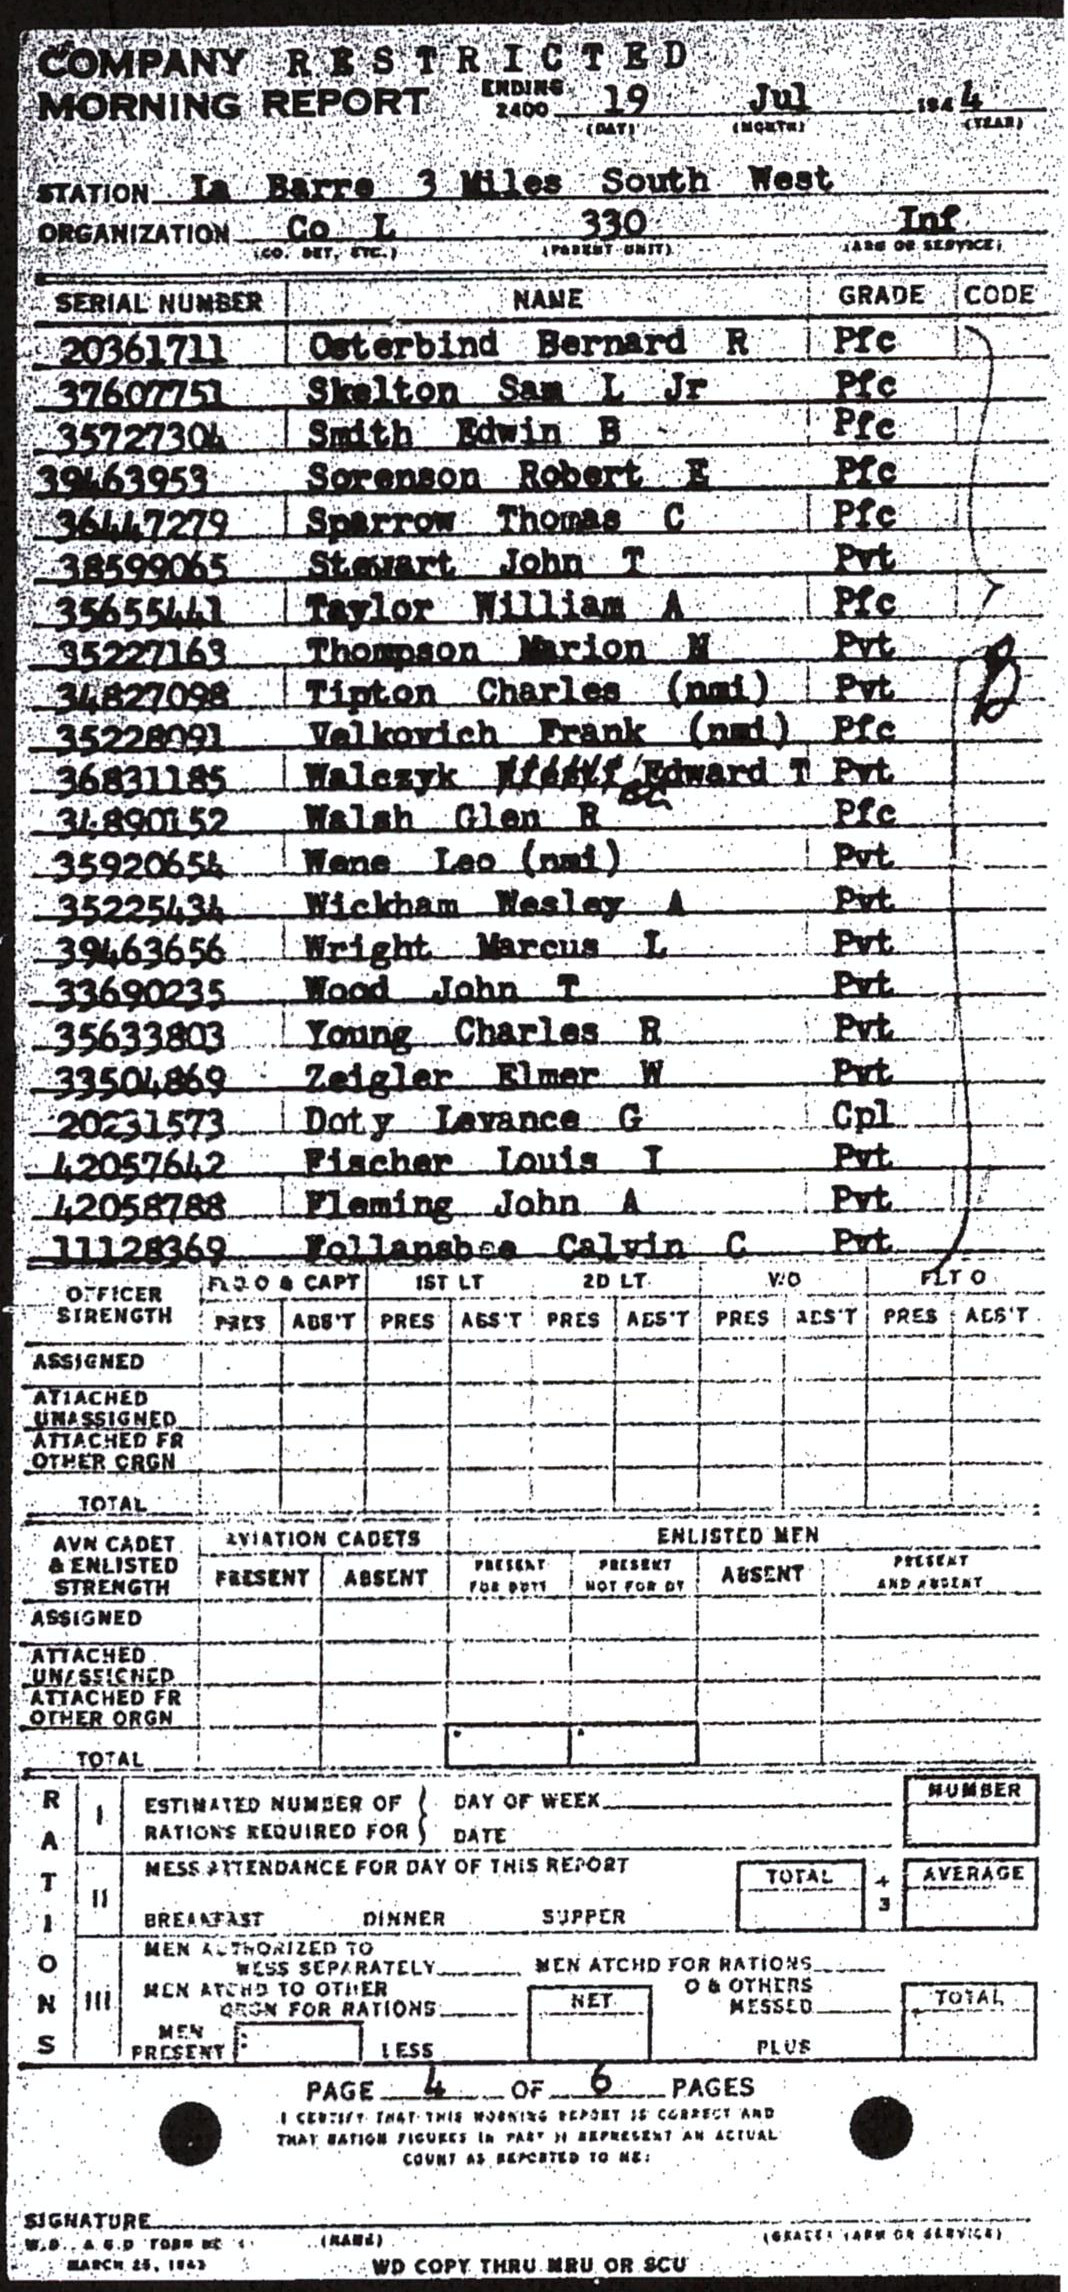 COMPANY RESTRICTED
MORNING REPORT ENDING 2400 19 Jul 1944
(DAY) (MONTH) (YEAR)
STATION La Barre 3 Miles South West
ORGANIZATION Co L 330 Inf
(CO. DET, ETC.) (PARENT UNIT) (ARM OR SERVICE)
SERIAL NUMBER NAME GRADE CODE
20361711 Osterbind Bernard R Pfc
37607751 Skelton Sam L Jr Pfc
35727304 Smith Edwin B Pfc
39463953 Sorenson Robert E Pfc
36447279 Sparrow Thomas C Pfc
38599065 Stewart John T Pvt
35655441 Taylor William A Pfc
35227163 Thompson Marion M Pvt
34827098 Tipton Charles (nmi) Pvt B
35228091 Velkovich Frank (nmi) Pfc
36831185 Walczyk Edward T Pvt
34890152 Walsh Glen R Pfc
35920654 Wene Leo (nmi) Pvt
35225434 Wickham Wesley A Pvt
39463656 Wright Marcus L Pvt
33690235 Wood John T Pvt
35633803 Young Charles R Pvt
33504869 Zeigler Elmer W Pvt
20231573 Doty Levance G Cpl
42057642 Fischer Louis I Pvt
42058788 Fleming John A Pvt
11128369 Follansbee Calvin C Pvt
OFFICER STRENGTH FLD O & CAPT 1ST LT 2D LT W O FLT O
PRES ABS'T PRES ABS'T PRES ABS'T PRES ABS'T PRES ABS'T
ASSIGNED
ATTACHED UNASSIGNED
ATTACHED FR OTHER ORGN
TOTAL
AVN CADET & ENLISTED STRENGTH AVIATION CADETS ENLISTED MEN
PRESENT ABSENT PRESENT FOR DUTY PRESENT NOT FOR DY ABSENT PRESENT AND ABSENT
ASSIGNED
ATTACHED UNASSIGNED
ATTACHED FR OTHER ORGN
TOTAL
RATIONS
I ESTIMATED NUMBER OF RATIONS REQUIRED FOR DAY OF WEEK NUMBER
DATE
II MESS ATTENDANCE FOR DAY OF THIS REPORT TOTAL ÷ 3 AVERAGE
BREAKFAST DINNER SUPPER
III MEN AUTHORIZED TO MESS SEPARATELY MEN ATCHD FOR RATIONS
MEN ATCHD TO OTHER ORGN FOR RATIONS NET O & OTHERS MESSED TOTAL
MEN PRESENT LESS PLUS
PAGE 4 OF 6 PAGES
I CERTIFY THAT THIS MORNING REPORT IS CORRECT AND
THAT RATION FIGURES IN PART II REPRESENT AN ACTUAL
COUNT AS REPORTED TO ME:
SIGNATURE
W.D., A.G.O. FORM NO. 1 (NAME) (GRADE) (ARM OR SERVICE)
MARCH 25, 1943 WD COPY THRU MRU OR SCU